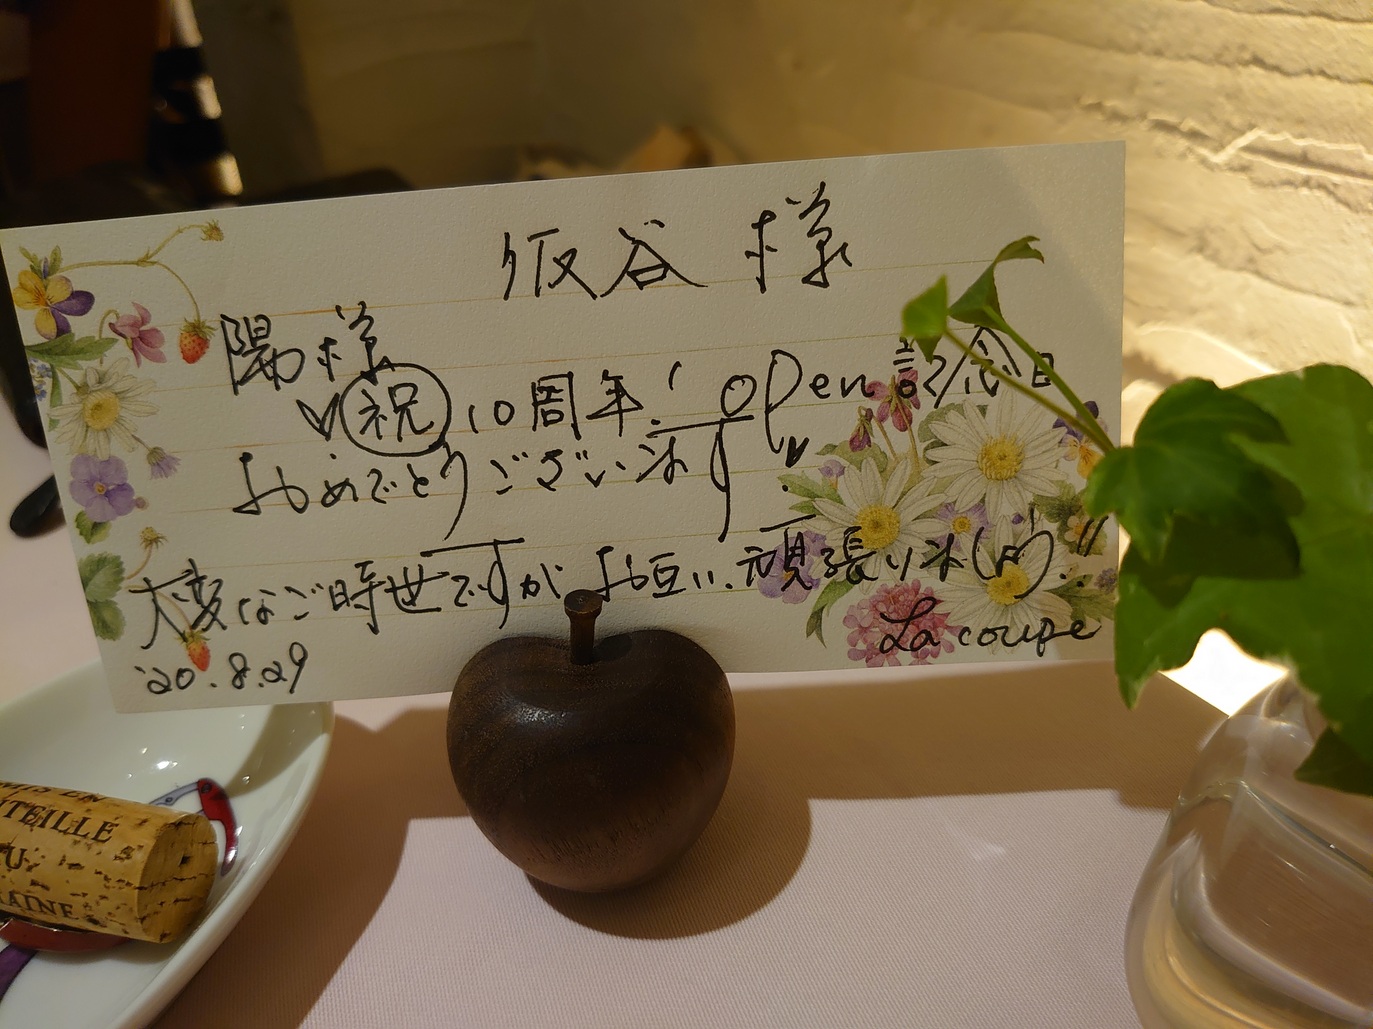 仮谷 様
陽 様
祝 10周年! open 記念日
おめでとうございます
大変なご時世ですが お互い、頑張りましょう..!!
'20.8.29
La coupe
TEILLE
AINE